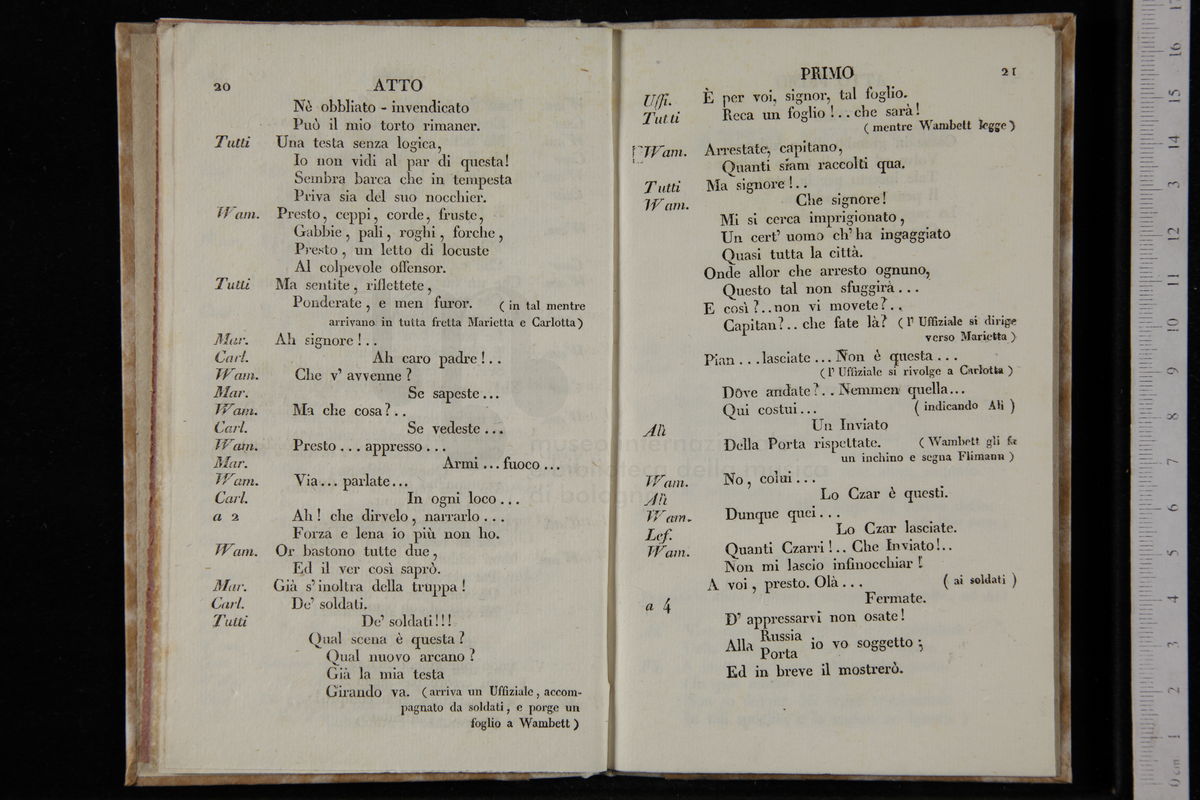 20 ATTO
Nè obbliato - invendicato
Può il mio torto rimaner.
Tutti Una testa senza logica,
Io non vidi al par di questa!
Sembra barca che in tempesta
Priva sia del suo nocchier.
Wam. Presto, ceppi, corde, fruste,
Gabbie, pali, roghi, forche,
Presto, un letto di locuste
Al colpevole offensor.
Tutti Ma sentite, riflettete,
Ponderate, e men furor. (in tal mentre
arrivano in tutta fretta Marietta e Carlotta)
Mar. Ah signore!..
Carl. Ah caro padre!..
Wam. Che v' avvenne?
Mar. Se sapeste...
Wam. Ma che cosa?..
Carl. Se vedeste...
Wam. Presto... appresso...
Mar. Armi... fuoco...
Wam. Via... parlate...
Carl. In ogni loco...
a 2 Ah! che dirvelo, narrarlo...
Forza e lena io più non ho.
Wam. Or bastono tutte due,
Ed il ver così saprò.
Mar. Già s' inoltra della truppa!
Carl. De' soldati.
Tutti De' soldati!!!
Qual scena è questa?
Qual nuovo arcano?
Già la mia testa
Girando va. (arriva un Uffiziale, accom-
pagnato da soldati, e porge un
foglio a Wambett)
PRIMO 21
Uffi. È per voi, signor, tal foglio.
Tutti Reca un foglio!.. che sarà!
(mentre Wambett legge)
Wam. Arrestate, capitano,
Quanti siam raccolti qua.
Tutti Ma signore!..
Wam. Che signore!
Mi si cerca imprigionato,
Un cert' uomo ch' ha ingaggiato
Quasi tutta la città.
Onde allor che arresto ognuno,
Questo tal non sfuggirà...
E così?.. non vi movete?..
Capitan?.. che fate là? (l' Uffiziale si dirige
verso Marietta)
Pian... lasciate... Non è questa...
(l' Uffiziale si rivolge a Carlotta)
Dove andate?.. Nemmen quella...
Qui costui... (indicando Alì)
Alì Un Inviato
Della Porta rispettate. (Wambett gli fa
un inchino e segna Flimann)
Wam. No, colui...
Alì Lo Czar è questi.
Wam. Dunque quei...
Lef. Lo Czar lasciate.
Wam. Quanti Czarri!.. Che Inviato!..
Non mi lascio infinocchiar!
A voi, presto. Olà... (ai soldati)
a 4 Fermate.
D' appressarvi non osate!
Alla Russia
Porta io vo soggetto;
Ed in breve il mostrerò.
museo internazionale
biblioteca della musica
di bologna